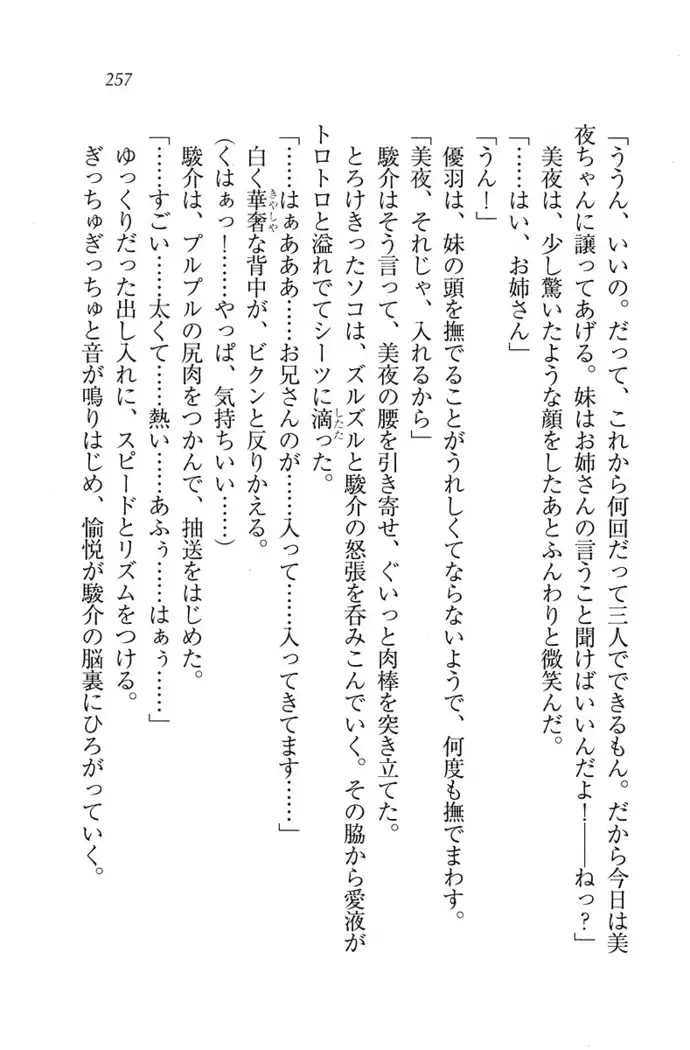 257
「ううん、いいの。だって、これから何回だって三人でできるもん。だから今日は美
夜ちゃんに譲ってあげる。妹はお姉さんの言うこと聞けばいいんだよ！――ねっ？」
美夜は、少し驚いたような顔をしたあとふんわりと微笑んだ。
「……はい、お姉さん」
「うん！」
優羽は、妹の頭を撫でることがうれしくてならないようで、何度も撫でまわす。
「美夜、それじゃ、入れるから」
駿介はそう言って、美夜の腰を引き寄せ、ぐいっと肉棒を突き立てた。
とろけきったソコは、ズルズルと駿介の怒張を呑みこんでいく。その脇から愛液が
トロトロと溢れでてシーツに滴った。
「……はぁあああ……お兄さんのが……入って……入ってきてます……」
白く華奢な背中が、ビクンと反りかえる。
(くはぁっ！……やっぱ、気持ちいい……)
駿介は、プルプルの尻肉をつかんで、抽送をはじめた。
「……すごい……太くて……熱い……あふぅ……はぁぅ……」
ゆっくりだった出し入れに、スピードとリズムをつける。
ぎっちゅぎっちゅと音が鳴りはじめ、愉悦が駿介の脳裏にひろがっていく。